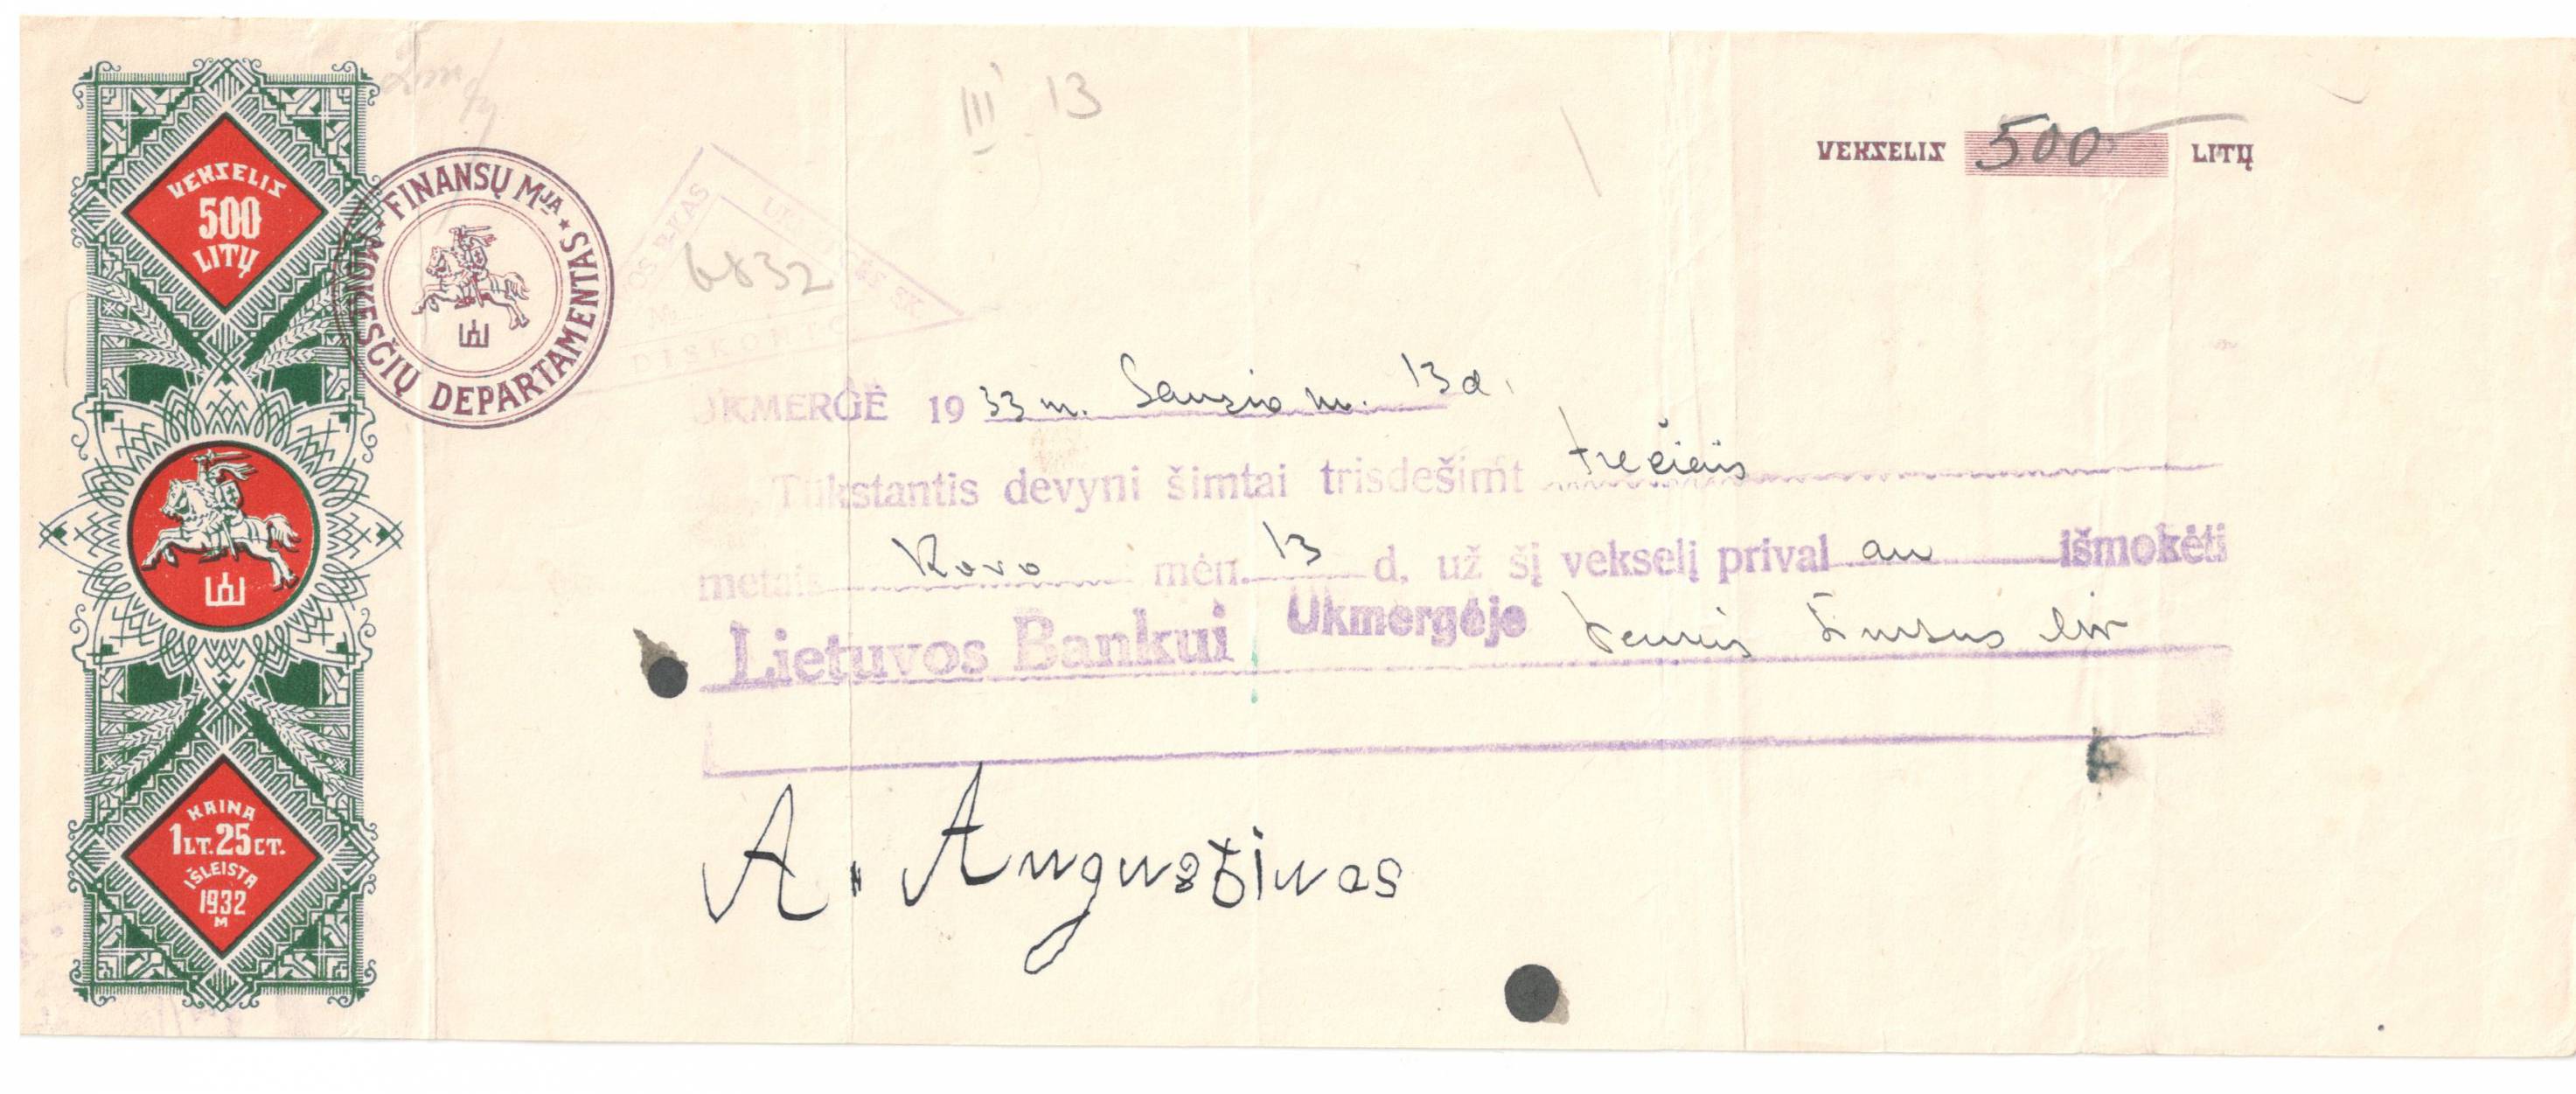 VEKSELIS
500
LITŲ
FINANSŲ MJA
MOKESČIŲ DEPARTAMENTAS
III 13
VEKSELIS 500 LITŲ
6832
DISKONTO
UKMERGĖ 1933 m. Sausio m. 13 d.
Tūkstantis devyni šimtai trisdešimt trečiais
metais Kovo mėn. 13 d. už šį vekselį prival au išmokėti
Lietuvos Bankui Ukmergėje
A. Augustinas
KAINA
1 LT. 25 CT.
IŠLEISTA
1932
M